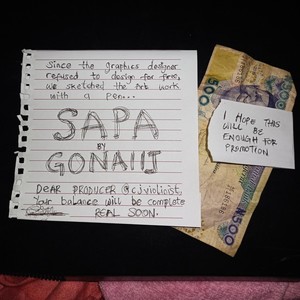 Since the graphics designer
refused to design for free,
we sketched the Art work
with a pen...
SAPA
BY
GONAIIJ
DEAR PRODUCER @cjviolinist,
Your balance will be complete
REAL SOON.
I HOPE THIS
WILL BE
ENOUGH FOR
PROMOTION
500
₦500